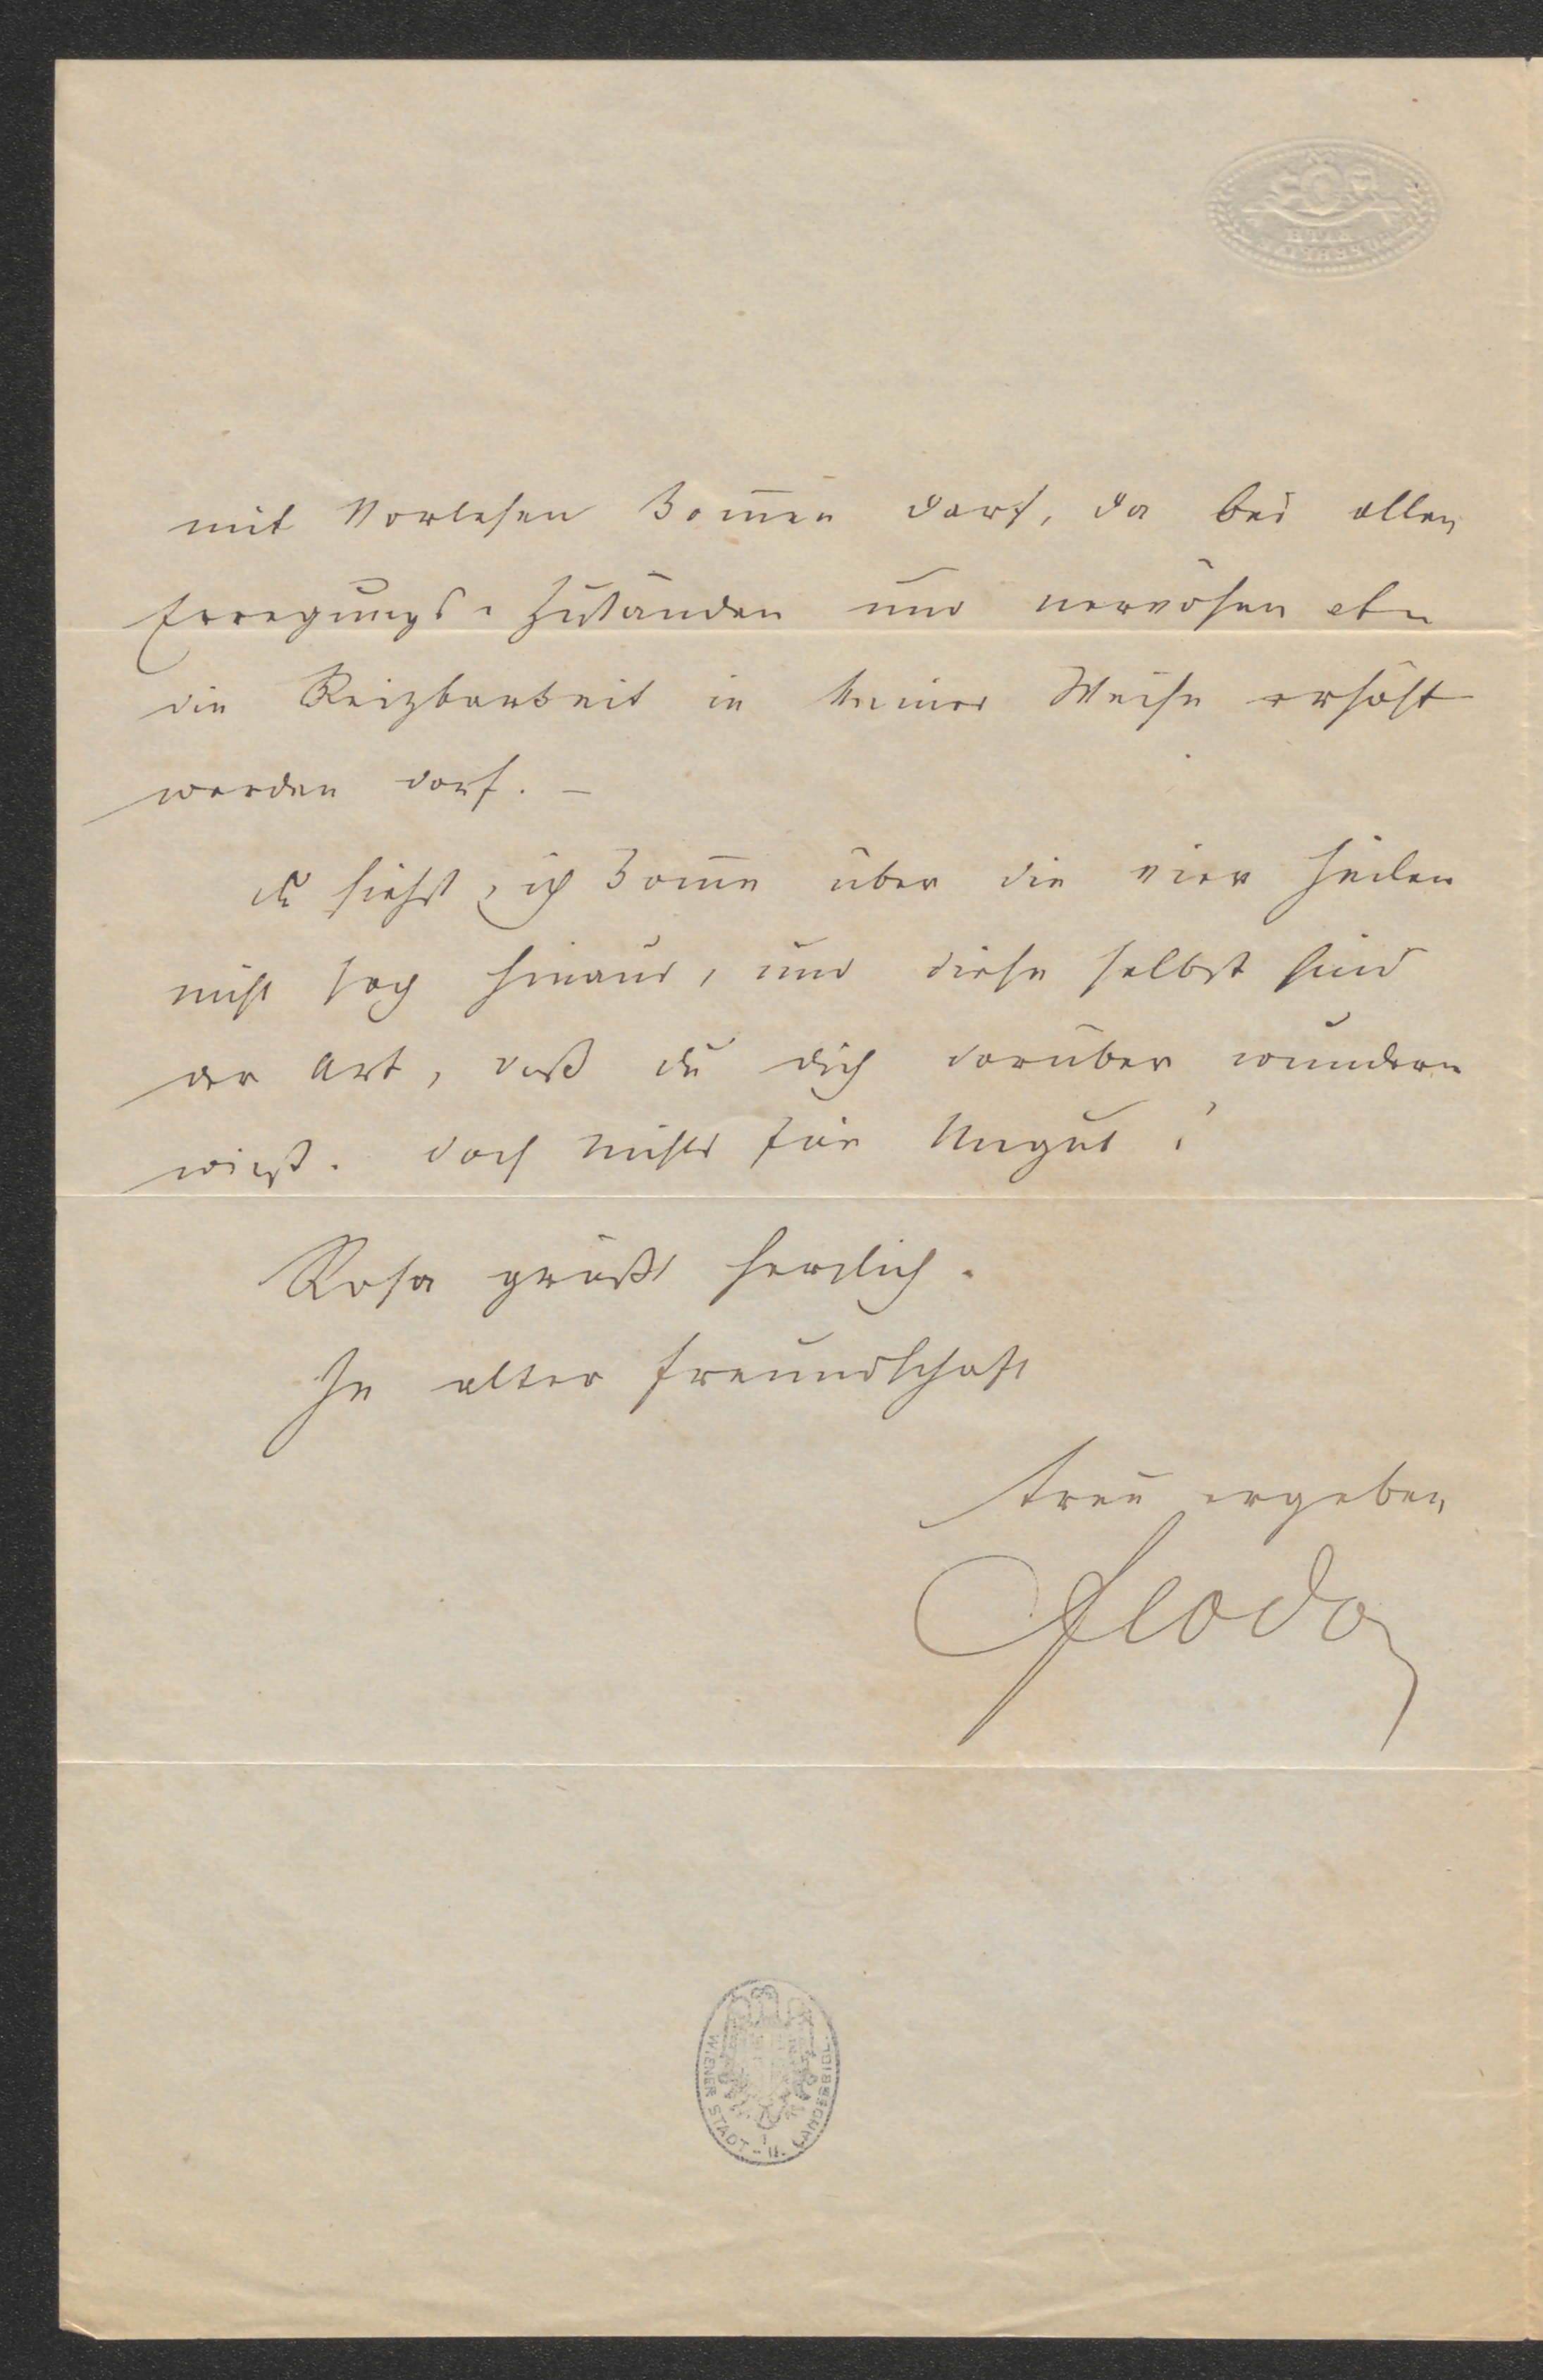 mit Vorlesen kom̅en darf, da bei allen
Erregungs-Zuständen und nervösen etc
die Reizbarkeit in keiner Weise erhöht
werden darf. –
du siehst, ich kom̅e über die vier Zeilen
nicht hinaus, und diese selbst sind
der Art, daß du dich darüber wundern
wirst. doch nichts für Ungut!
Rosa grüßt herzlich.
In alter Freundschaft
treu ergeben
Feodor
WIENER STADT- U. LANDESBIBL.